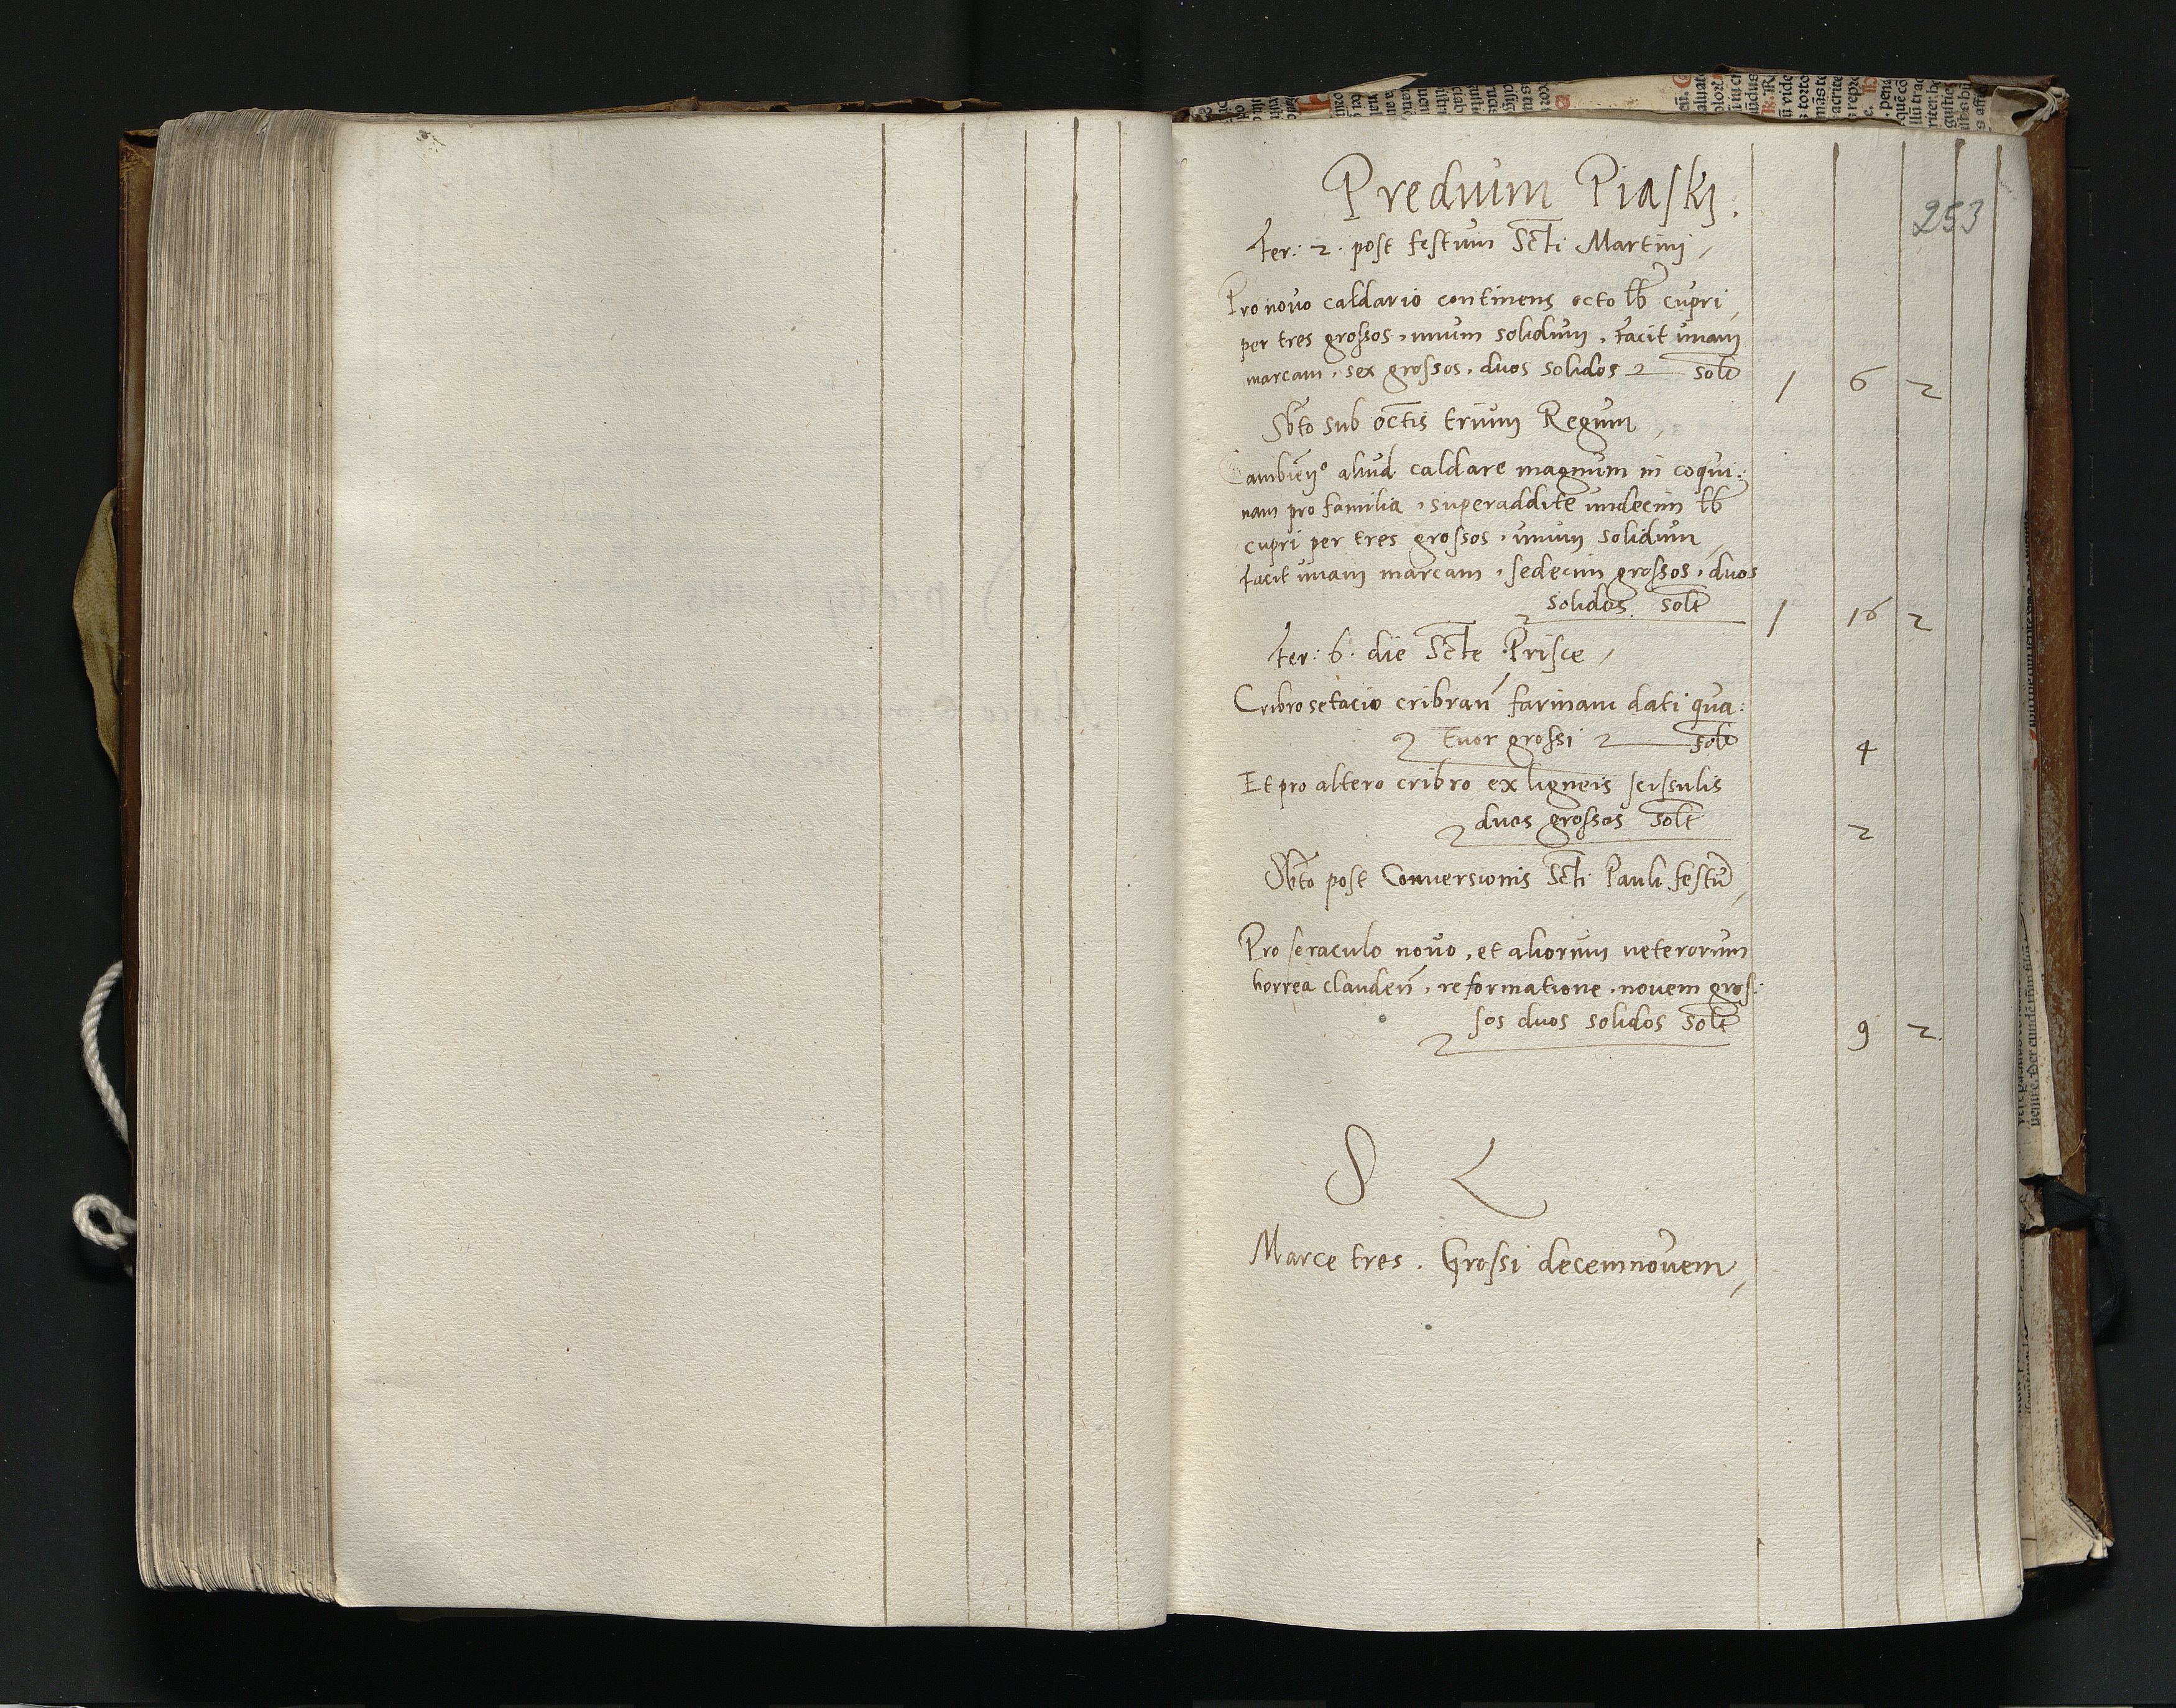 Predium Piaskj.
253
Fer: 2. post festum Scti Martinj
Pro nouo caldario continens octo lb cupri
per tres grossos, unum solidum, facit unam
marcam, sex grossos, duos solidos solt 1 6 2
Sbto sub octis trium Regum
Cambien° aliud caldare magnum in coqui:
nam pro familia, superaddite undecim lb
cupri per tres grossos, unum solidum
facit unam marcam, sedecim grossos, duos
solidos solt 1 16 2
Fer: 6. die Scte Prisce
Cribro setacio cribran farinam dati qua:
tuor grossi solt 4
Et pro altero cribro ex ligneis scissulis
duos grossos solt 2
Sbto post Conuersionis Scti Pauli festu
Pro seraculo nouo, et aliorum ueterorum
horrea clauden, reformatione, nouem gros:
sos duos solidos solt 9 2
S L
Marce tres. Grossi decemnouem